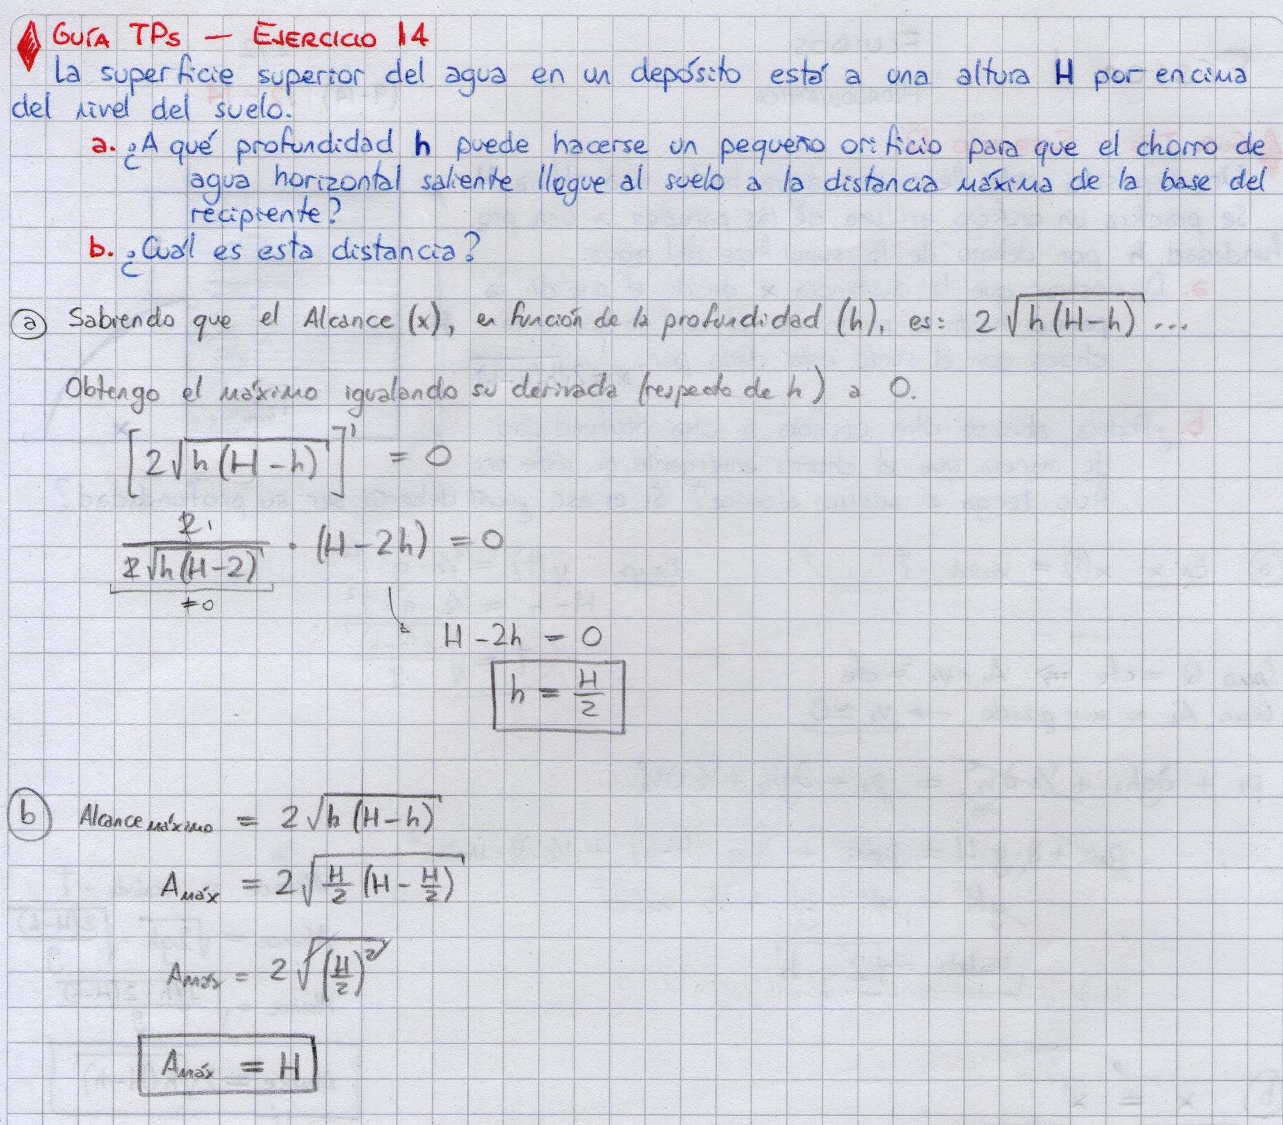 GUÍA TPs — EJERCICIO 14
La superficie superior del agua en un depósito está a una altura H por encima
del nivel del suelo.
a. ¿A qué profundidad h puede hacerse un pequeño orificio para que el chorro de
agua horizontal saliente llegue al suelo a la distancia máxima de la base del
recipiente?
b. ¿Cuál es esta distancia?
a Sabiendo que el Alcance (x), en función de la profundidad (h), es: 2√h(H-h) ...
Obtengo el máximo igualando su derivada (respecto de h) a 0.
[2√h(H-h)]' = 0
2 1 / 2√h(H-2) · (H-2h) = 0
≠0
H-2h = 0
h = H/2
b Alcance máximo = 2√h(H-h)
Amáx = 2√H/2 (H-H/2)
Amáx = 2√(H/2)²
Amáx = H